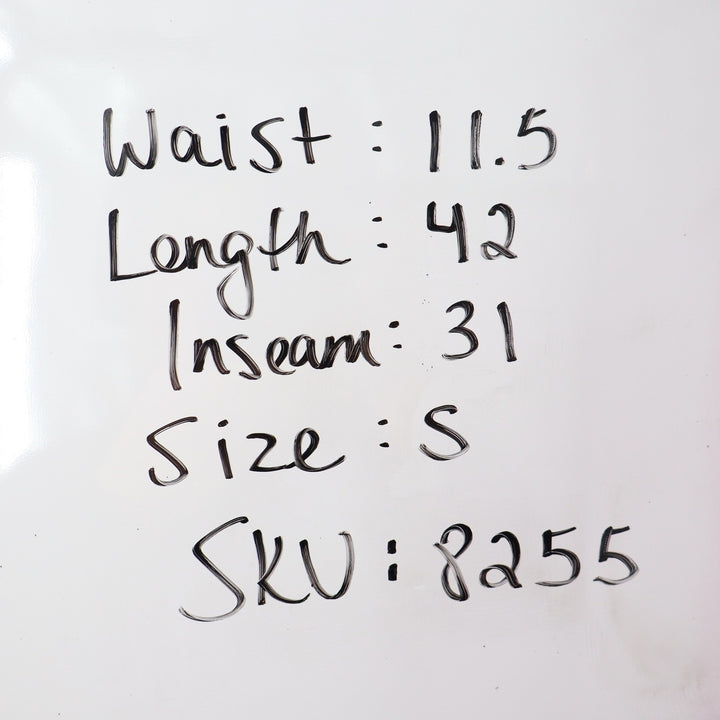 Waist : 11.5
Length : 42
Inseam : 31
Size : S
SKU : 8255